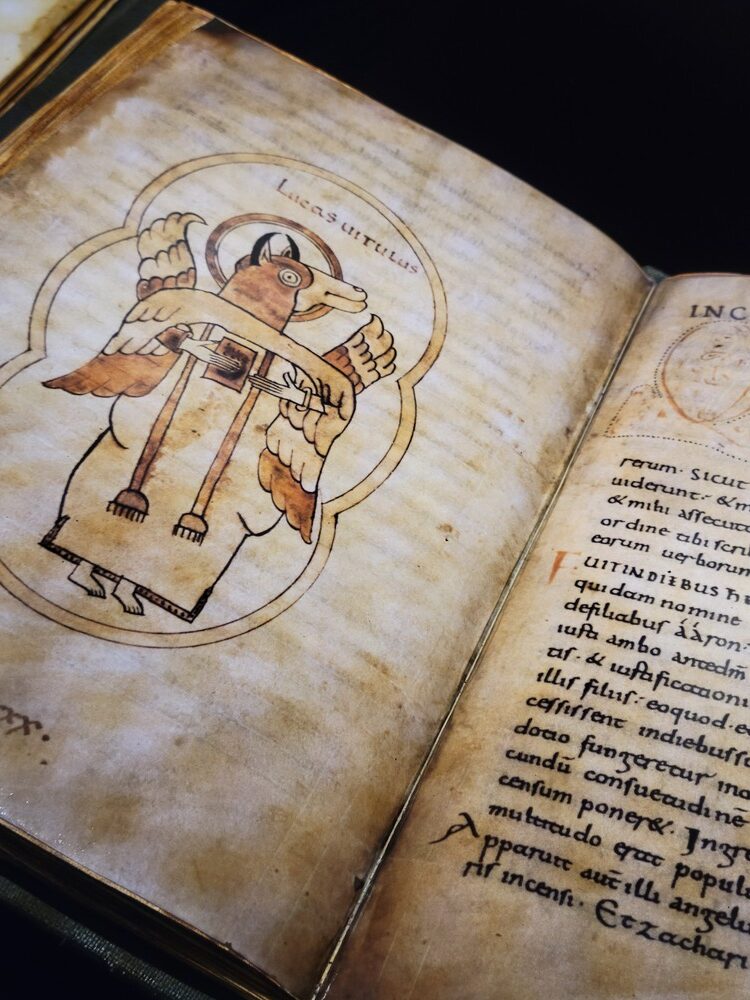 Lucas uitulus
xx.
INC
rerum. Sicut
uiderunt. & m
& mihi assecuto
ordine tibi scri
eorum uerborum
FUIT IN DIEBUS HE
quidam nomine
de filiabus ááron.
iusti ambo anted̄m
tis. & iustificationi
illis filius. eoquod. e
cessissent indiebus su
dotio fungeretur ino
cundū consuetudinē
censum poner&. Ingre
multitudo erat popul
Apparuit aūt illi angelu
ris incensi. Et zachari